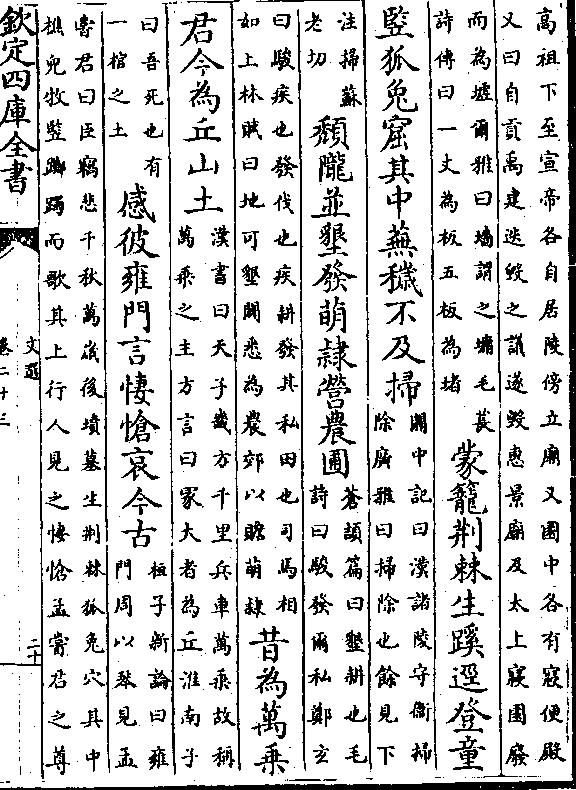 高祖下至宣帝各自居陵傍立廟又園中各有寢便殿
又曰自貢禹建迭毀之議遂毀惠景廟及太上寢園廢
而為墟爾雅曰墻謂之墉毛萇
詩傳曰一丈為板五板為堵
蒙籠荆棘生蹊逕登童
豎狐兔窟其中蕪穢不及掃
關中記曰漢諸陵守衛掃
除廣雅曰掃除也餘見下
注掃蘇
老切
頹隴並墾發萌隸營農圃
蒼頡篇曰墾耕也毛
詩曰駿發爾私鄭玄
曰駿疾也發伐也疾耕發其私田也司馬相
如上林賦曰地可墾闢悉為農郊以贍萌隸
昔為萬乘
君今為丘山土
漢書曰天子畿方千里兵車萬乘故稱
萬乘之主方言曰冢大者為丘淮南子
曰吾死也有
一棺之土
感彼雍門言悽愴哀今古
桓子新論曰雍
門周以琴見孟
嘗君曰臣竊悲千秋萬歲後墳墓生荆棘狐兔穴其中
樵兒牧豎躑躅而歌其上行人見之悽愴孟嘗君之尊
欽定四庫全書
文選
卷二十三
二十